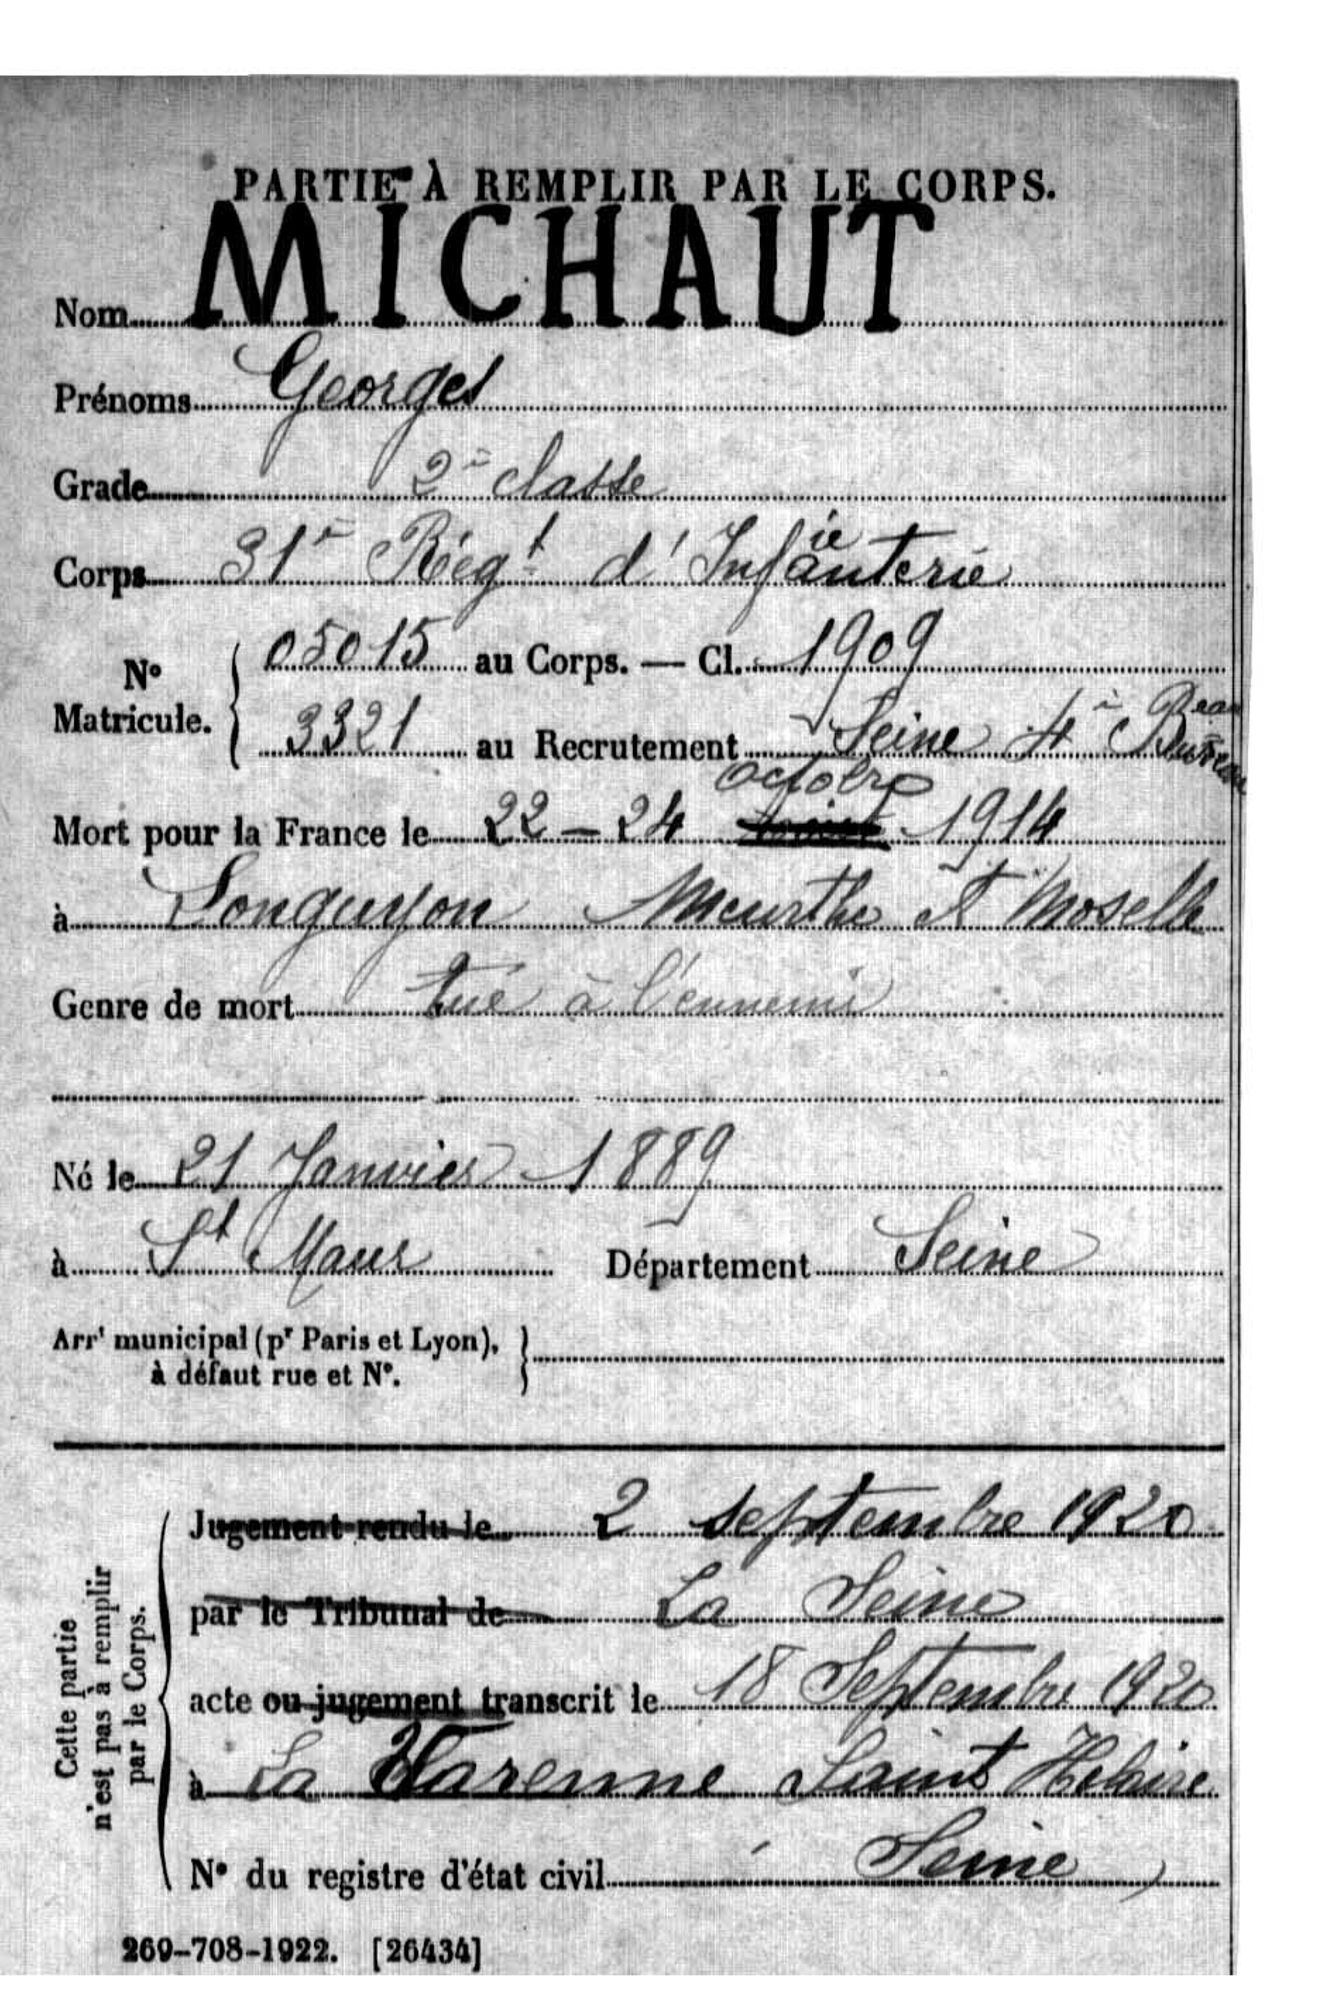 PARTIE À REMPLIR PAR LE CORPS.
Nom MICHAUT
Prénoms Georges
Grade 2e classe
Corps 31e Régt d'Infanterie
No Matricule. { 05015 au Corps. — Cl. 1909
3321 au Recrutement Seine 4e Bureau
octobre
Mort pour la France le 22 – 24 1914
à Longuyon Meurthe et Moselle
Genre de mort tué à l'ennemi
Né le 21 Janvier 1889
à St Maur Département Seine
Arrt municipal (pr Paris et Lyon), à défaut rue et N°. }
Cette partie n'est pas à remplir par le Corps.
Jugement rendu le 2 septembre 1920
par le Tribunal de La Seine
acte ou jugement transcrit le 18 Septembre 1920
à La Varenne Saint Helaire
N° du registre d'état civil Seine
269-708-1922. [26434]